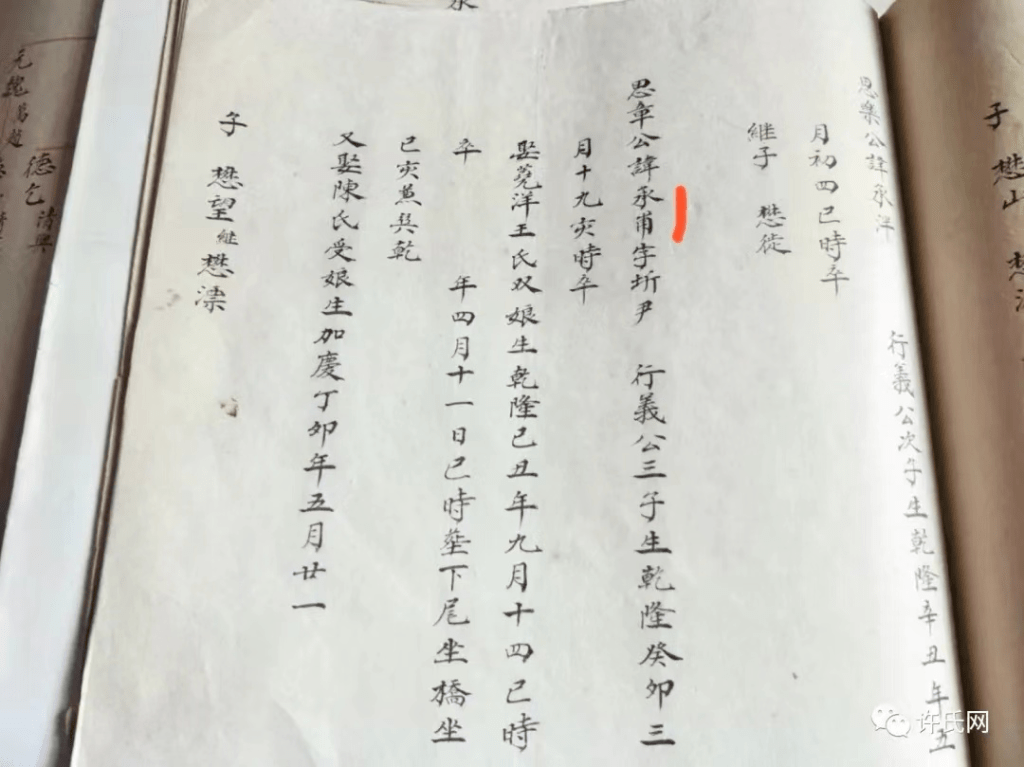 思樂公諱承洋 行義公次子生乾隆辛丑年五
月初四巳時卒
継子 懋從
思章公諱承甫字圻尹 行義公三子生乾隆癸卯三
月十九亥時卒
娶莧洋王氏双娘生乾隆己丑年九月十四巳時
卒 年四月十一日巳時塟下尾坐橋坐
巳亥兼巽乾
又娶陳氏受娘生加慶丁卯年五月廿一
子 懋望継懋溁
子 懋山 懋
元魏
德乞
许氏网